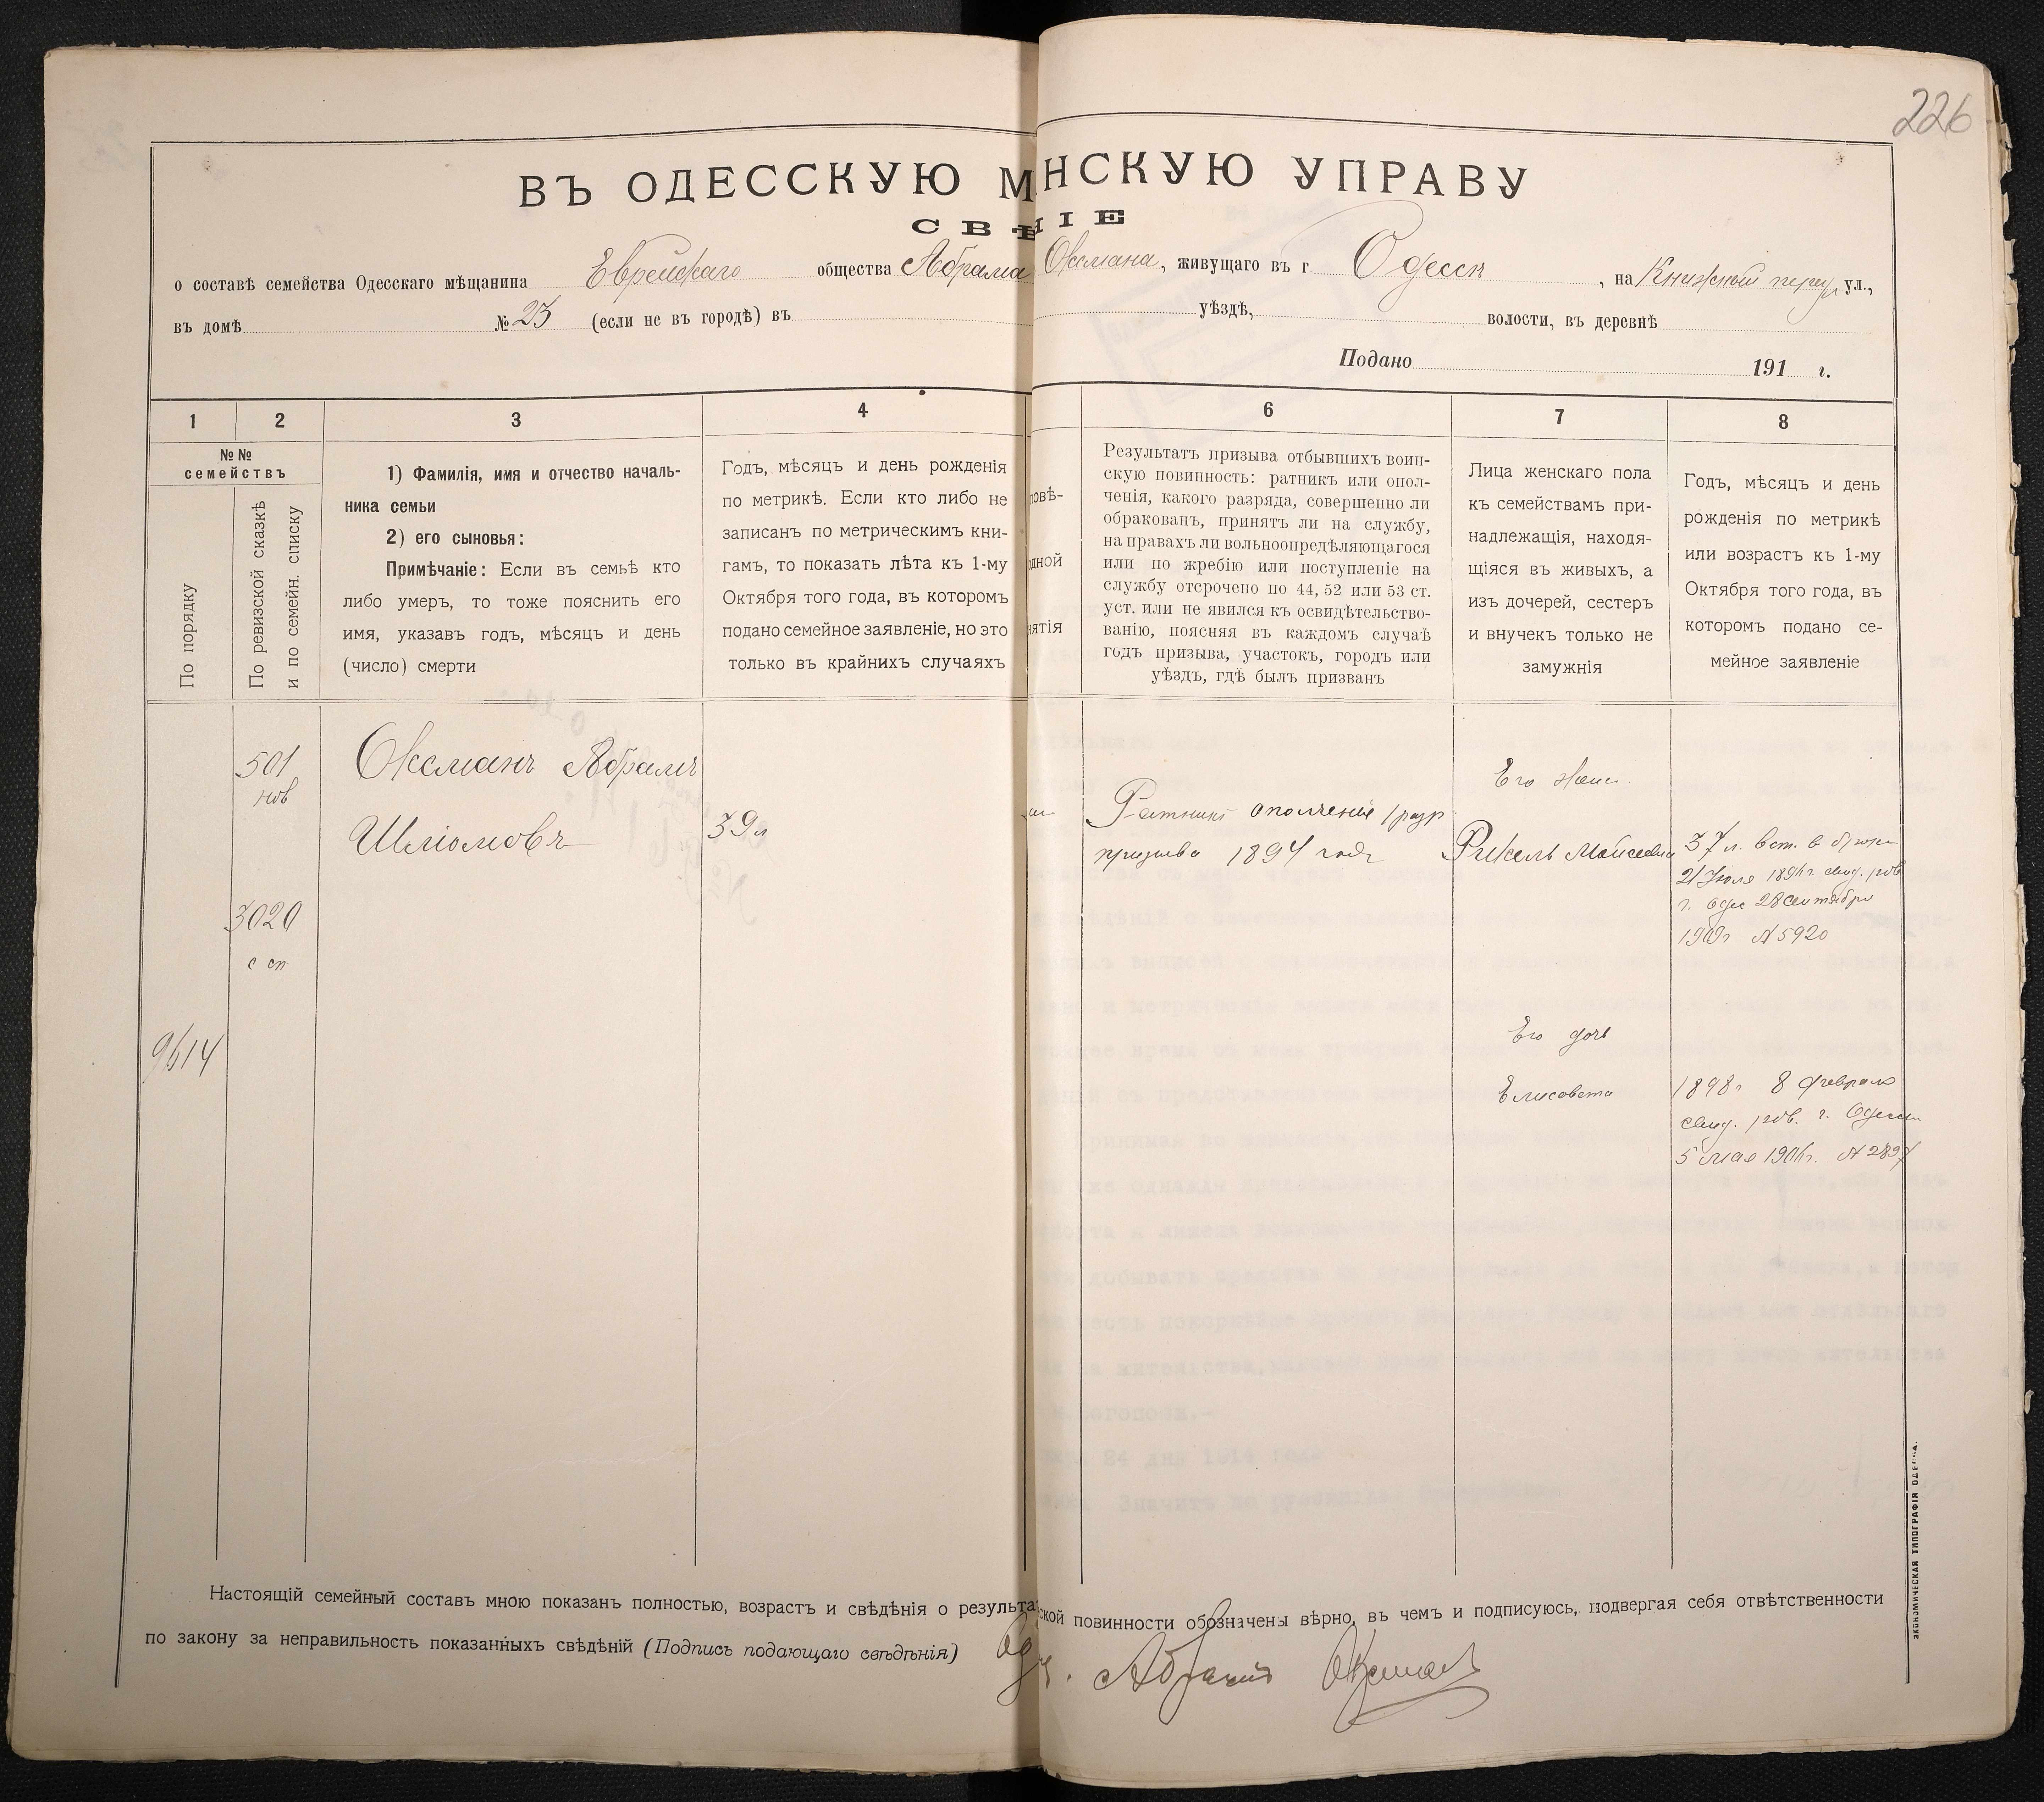 226
ВЪ ОДЕССКУЮ М НСКУЮ УПРАВУ
СВѢ НІЕ
о составѣ семейства Одесскаго мѣщанина Еврейскаго общества Абрама Оксмана, живущаго въ г Одессѣ, на Книжный пер ул.,
въ домѣ № 23 (если не въ городѣ) въ уѣздѣ, волости, въ деревнѣ
Подано 191 г.
1 2 3 4 6 7 8
№№
семействъ
По порядку
По ревизской сказкѣ
и по семейн. списку
1) Фамилія, имя и отчество началь-
ника семьи
2) его сыновья:
Примѣчаніе: Если въ семьѣ кто
либо умеръ, то тоже пояснить его
имя, указавъ годъ, мѣсяцъ и день
(число) смерти
Годъ, мѣсяцъ и день рожденія
по метрикѣ. Если кто либо не
записанъ по метрическимъ кни-
гамъ, то показать лѣта къ 1-му
Октября того года, въ которомъ
подано семейное заявленіе, но это
только въ крайнихъ случаяхъ
овѣ-
дной
ятія
Результатъ призыва отбывшихъ воин-
скую повинность: ратникъ или опол-
ченія, какого разряда, совершенно ли
обракованъ, принятъ ли на службу,
на правахъ ли вольноопредѣляющагося
или по жребію или поступленіе на
службу отсрочено по 44, 52 или 53 ст.
уст. или не явился къ освидѣтельство-
ванію, поясняя въ каждомъ случаѣ
годъ призыва, участокъ, городъ или
уѣздъ, гдѣ былъ призванъ
Лица женскаго пола
къ семействамъ при-
надлежащія, находя-
щіяся въ живыхъ, а
изъ дочерей, сестеръ
и внучекъ только не
замужнія
Годъ, мѣсяцъ и день
рожденія по метрикѣ
или возрастъ къ 1-му
Октября того года, въ
которомъ подано се-
мейное заявленіе
501
нов
3020
с сп
9614
Оксманъ Абрамъ
Шліомовъ
39 л
Ратникъ ополченія 1 разр
призыва 1894 года
Его жена
Рикель Мойсеевна
37 л. вст. в бракъ
21 Іюля 1896 г. свид. рав
г. Одес 28 Сентября
1909 г № 5920
Его дочь
Елисавета
1898 г 8 февраля
свид. рав. г. Одессы
5 Мая 1906 г. № 2897
Настоящій семейный составъ мною показанъ полностью, возрастъ и свѣдѣнія о результа ской повинности обозначены вѣрно, въ чемъ и подписуюсь, подвергая себя отвѣтственности
по закону за неправильность показанныхъ свѣдѣній (Подпись подающаго свѣдѣнія) Абрамъ Оксманъ
ЭКОНОМИЧЕСКАЯ ТИПОГРАФІЯ ОДЕССА.